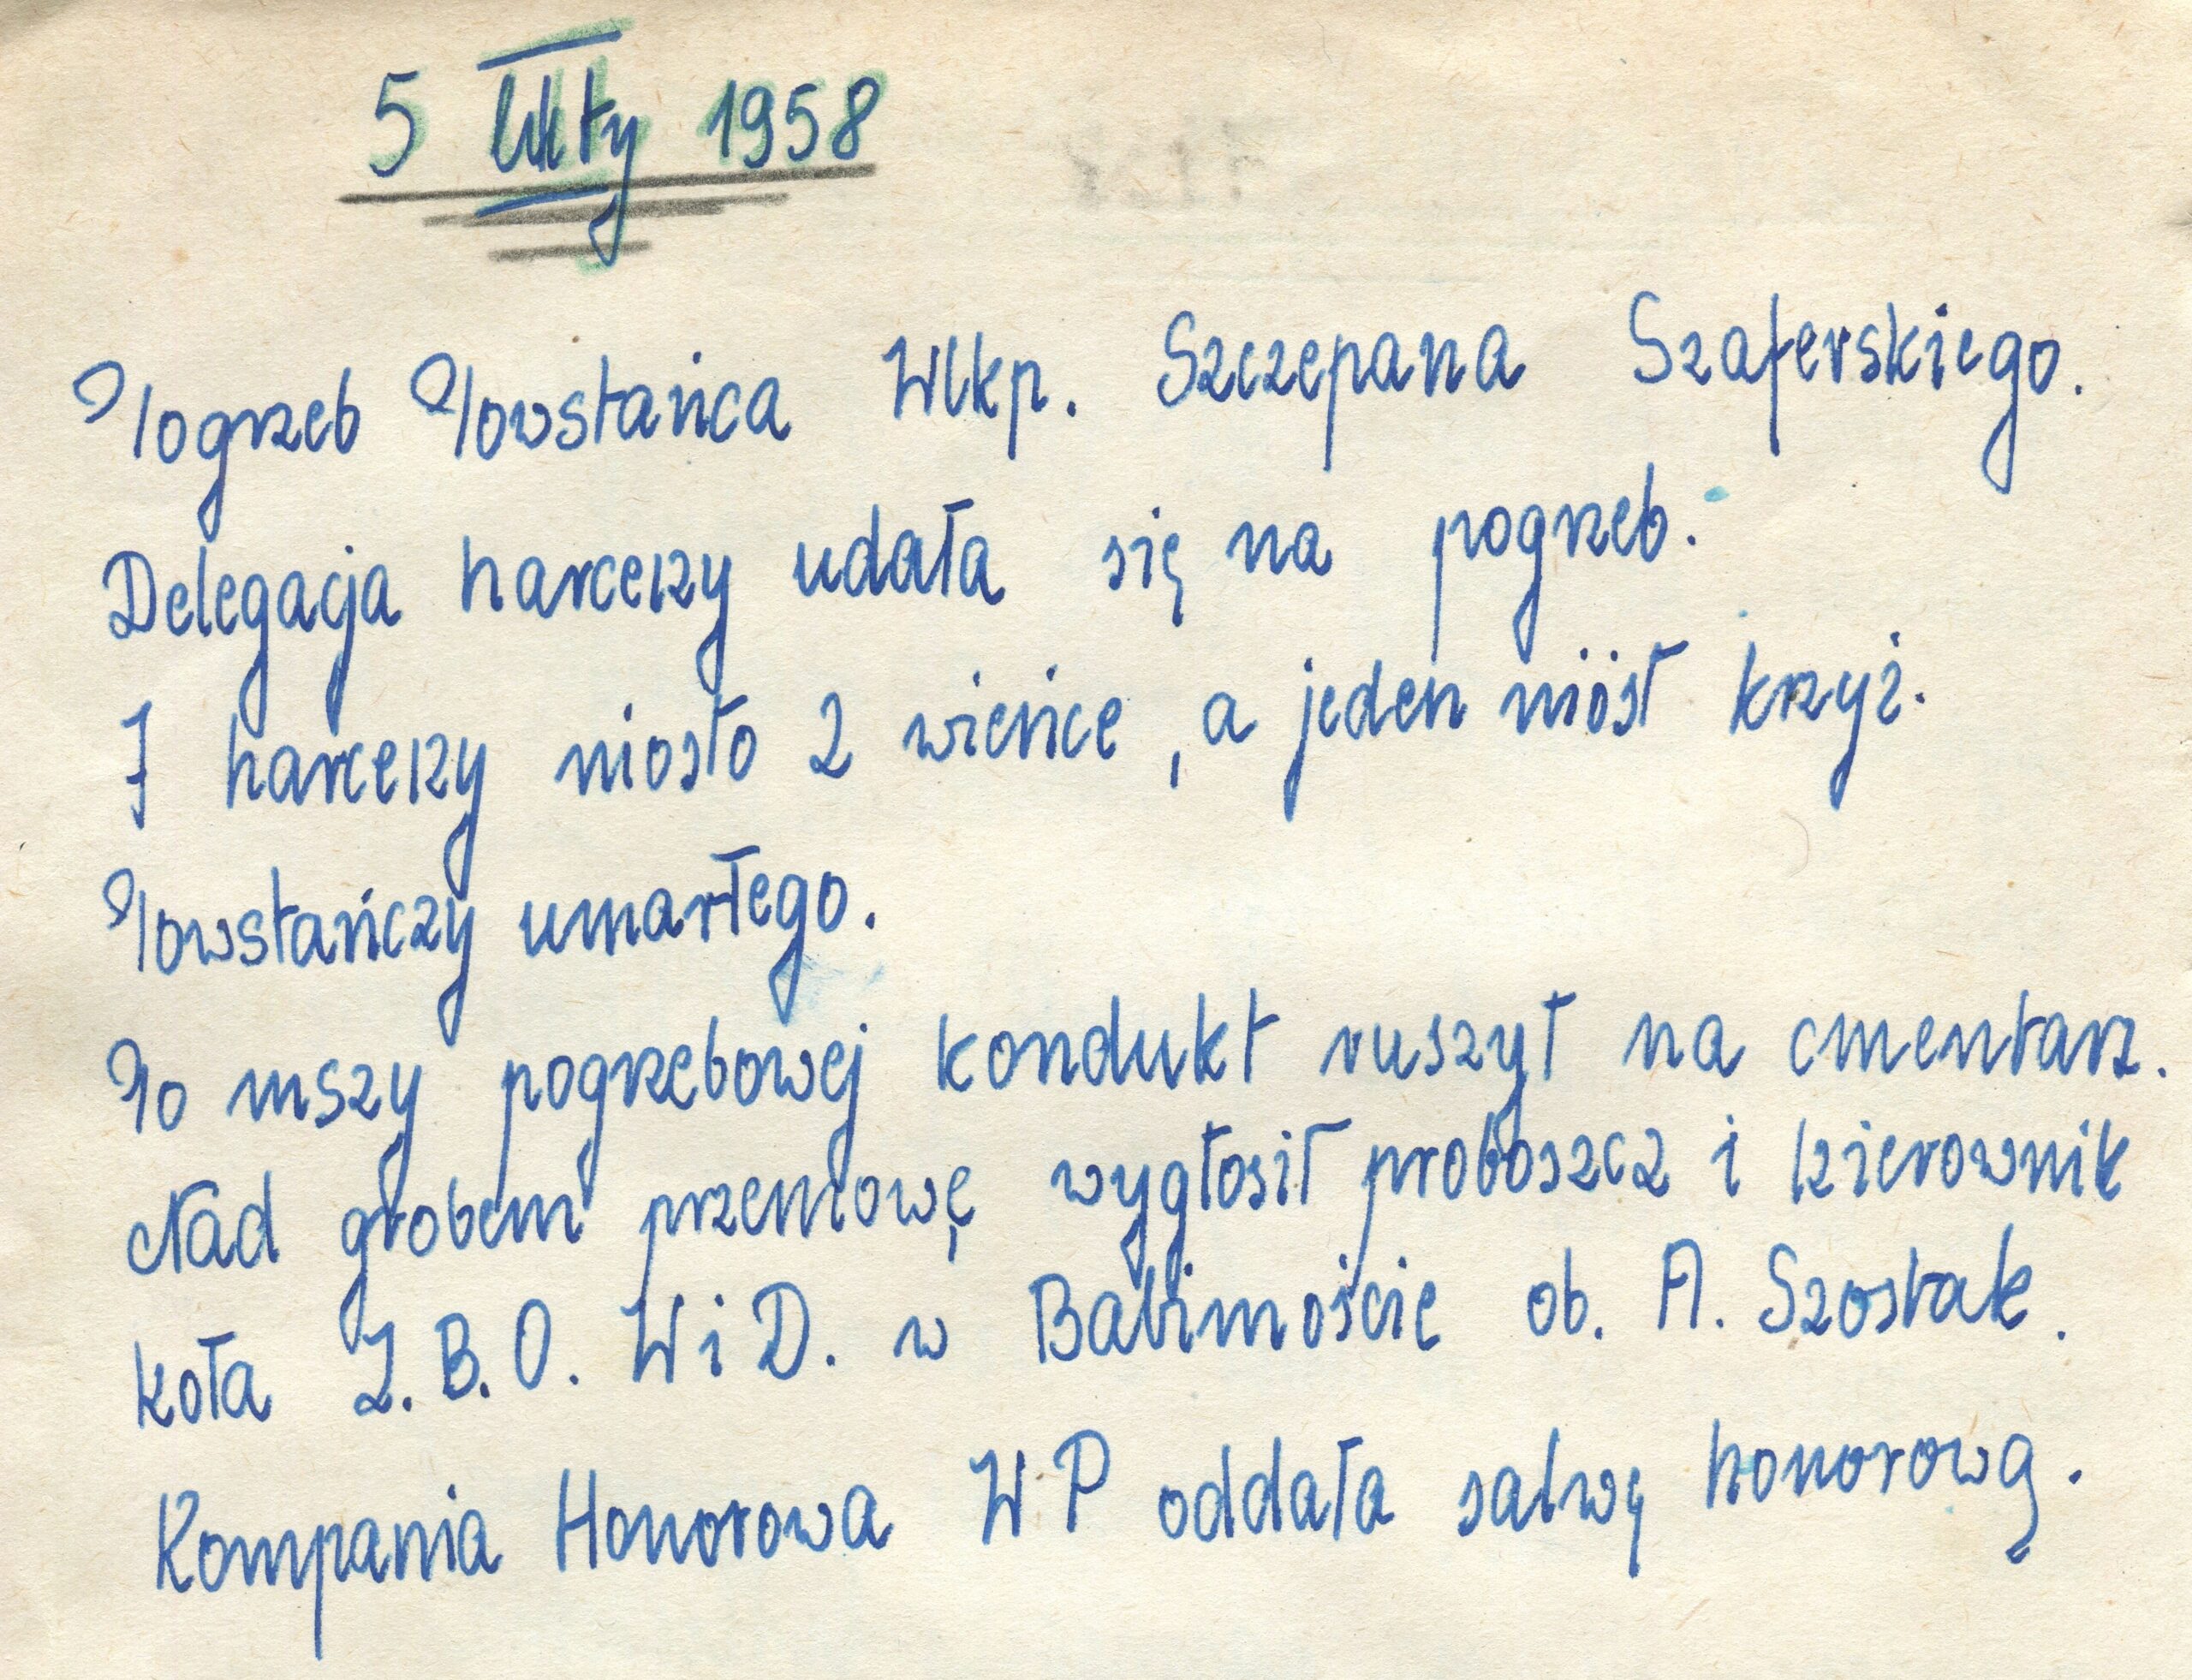 5 luty 1958
Pogrzeb Powstańca Wlkp. Szczepana Szaferskiego.
Delegacja harcerzy udała się na pogrzeb.
7 harcerzy niosło 2 wieńce, a jeden niósł krzyż.
Powstańczy umarłego.
Po mszy pogrzebowej kondukt ruszył na cmentarz.
Nad grobem przemowę wygłosił proboszcz i kierownik
koła Z.B.O. W i D. w Babimoście ob. A. Szostak.
Kompania Honorowa WP oddała salwę honorową.